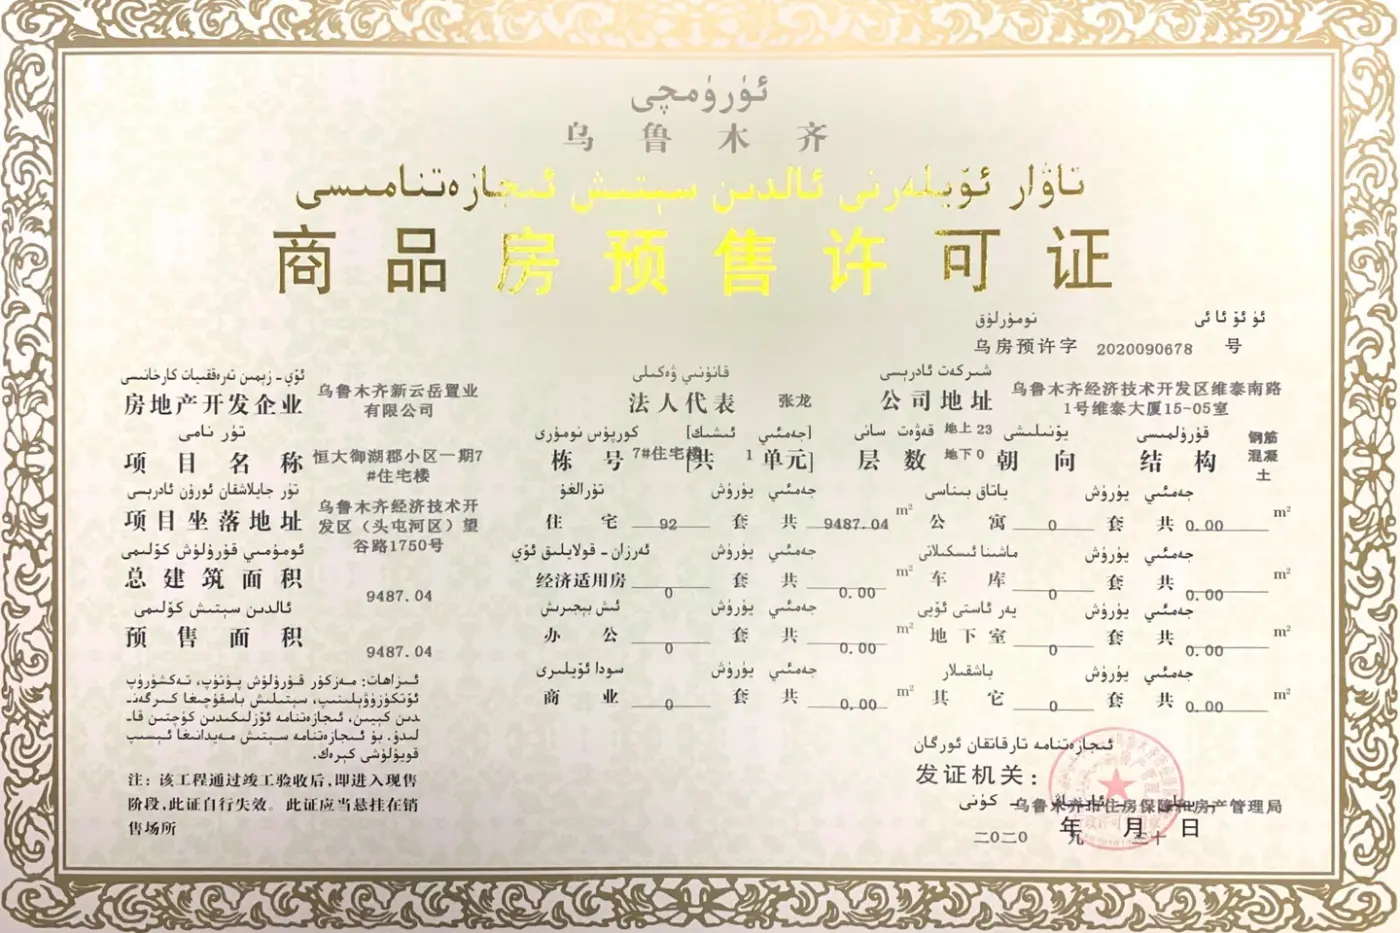 ئۈرۈمچى
乌鲁木齐
تاۋار ئۆيلەرنى ئالدىن سېتىش ئىجازەتنامىسى
商品房预售许可证
ئۈ ئۆ ئا ئى نومۇرلۇق
乌房预许字 2020090678 号
ئۆي - زېمىن تەرەققىيات كارخانىسى
房地产开发企业 乌鲁木齐新云岳置业有限公司
قانۇنىي ۋەكىلى
法人代表 张龙
شىركەت ئادرېسى
公司地址 乌鲁木齐经济技术开发区维泰南路1号维泰大厦15-05室
تۈر نامى
项目名称 恒大御湖郡小区一期7#住宅楼
كورپۇس نومۇرى [جەمئىي ئىشىك]
栋号 7#住宅楼 [共 1 单元]
قەۋەت سانى
层数 地上 23 地下 0
يۆنىلىشى
朝向
قۇرۇلمىسى
结构 钢筋混凝土
تۈر جايلاشقان ئورۇن ئادرېسى
项目坐落地址 乌鲁木齐经济技术开发区（头屯河区）望谷路1750号
تۇرالغۇ يۈرۈش جەمئىي
住宅 92 套 共 9487.04 m²
ياتاق بىناسى يۈرۈش جەمئىي
公寓 0 套 共 0.00 m²
ئومۇمىي قۇرۇلۇش كۆلىمى
总建筑面积 9487.04
ئەرزان - قولايلىق ئۆي يۈرۈش جەمئىي
经济适用房 0 套 共 0.00 m²
ماشىنا ئىسكىلاتى يۈرۈش جەمئىي
车库 0 套 共 0.00 m²
ئالدىن سېتىش كۆلىمى
预售面积 9487.04
ئىش بېجىرىش يۈرۈش جەمئىي
办公 0 套 共 0.00 m²
يەر ئاستى ئۆيى يۈرۈش جەمئىي
地下室 0 套 共 0.00 m²
سودا ئۆيلىرى يۈرۈش جەمئىي
商业 0 套 共 0.00 m²
باشقىلار يۈرۈش جەمئىي
其它 0 套 共 0.00 m²
ئىزاھات: مەزكۇر قۇرۇلۇش پۈتۈپ، تەكشۈرۈپ
ئۆتكۈزۈۋېلىنىپ، سېتىلىش باسقۇچىغا كىرگەن-
دىن كېيىن، ئىجازەتنامە ئۆزلىكىدىن كۈچتىن قا-
لىدۇ. بۇ ئىجازەتنامە سېتىش مەيدانىغا ئېسىپ
قويۇلۇشى كېرەك.
注：该工程通过竣工验收后，即进入现售
阶段，此证自行失效。此证应当悬挂在销
售场所
ئىجازەتنامە تارقاتقان ئورگان
发证机关：
乌鲁木齐市住房保障和房产管理局
二〇二〇 年 九 月 三十 日